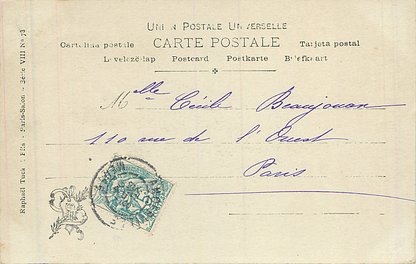 UNION POSTALE UNIVERSELLE
Cartolina postale CARTE POSTALE Tarjeta postal
Levelezö-lap Postcard Postkarte Briefkaart
Mlle Cécile Beaujouan
110 rue de l'Ouest
Paris
Raphaël Tuck & Fils Paris-Salon - Série VIII No 73